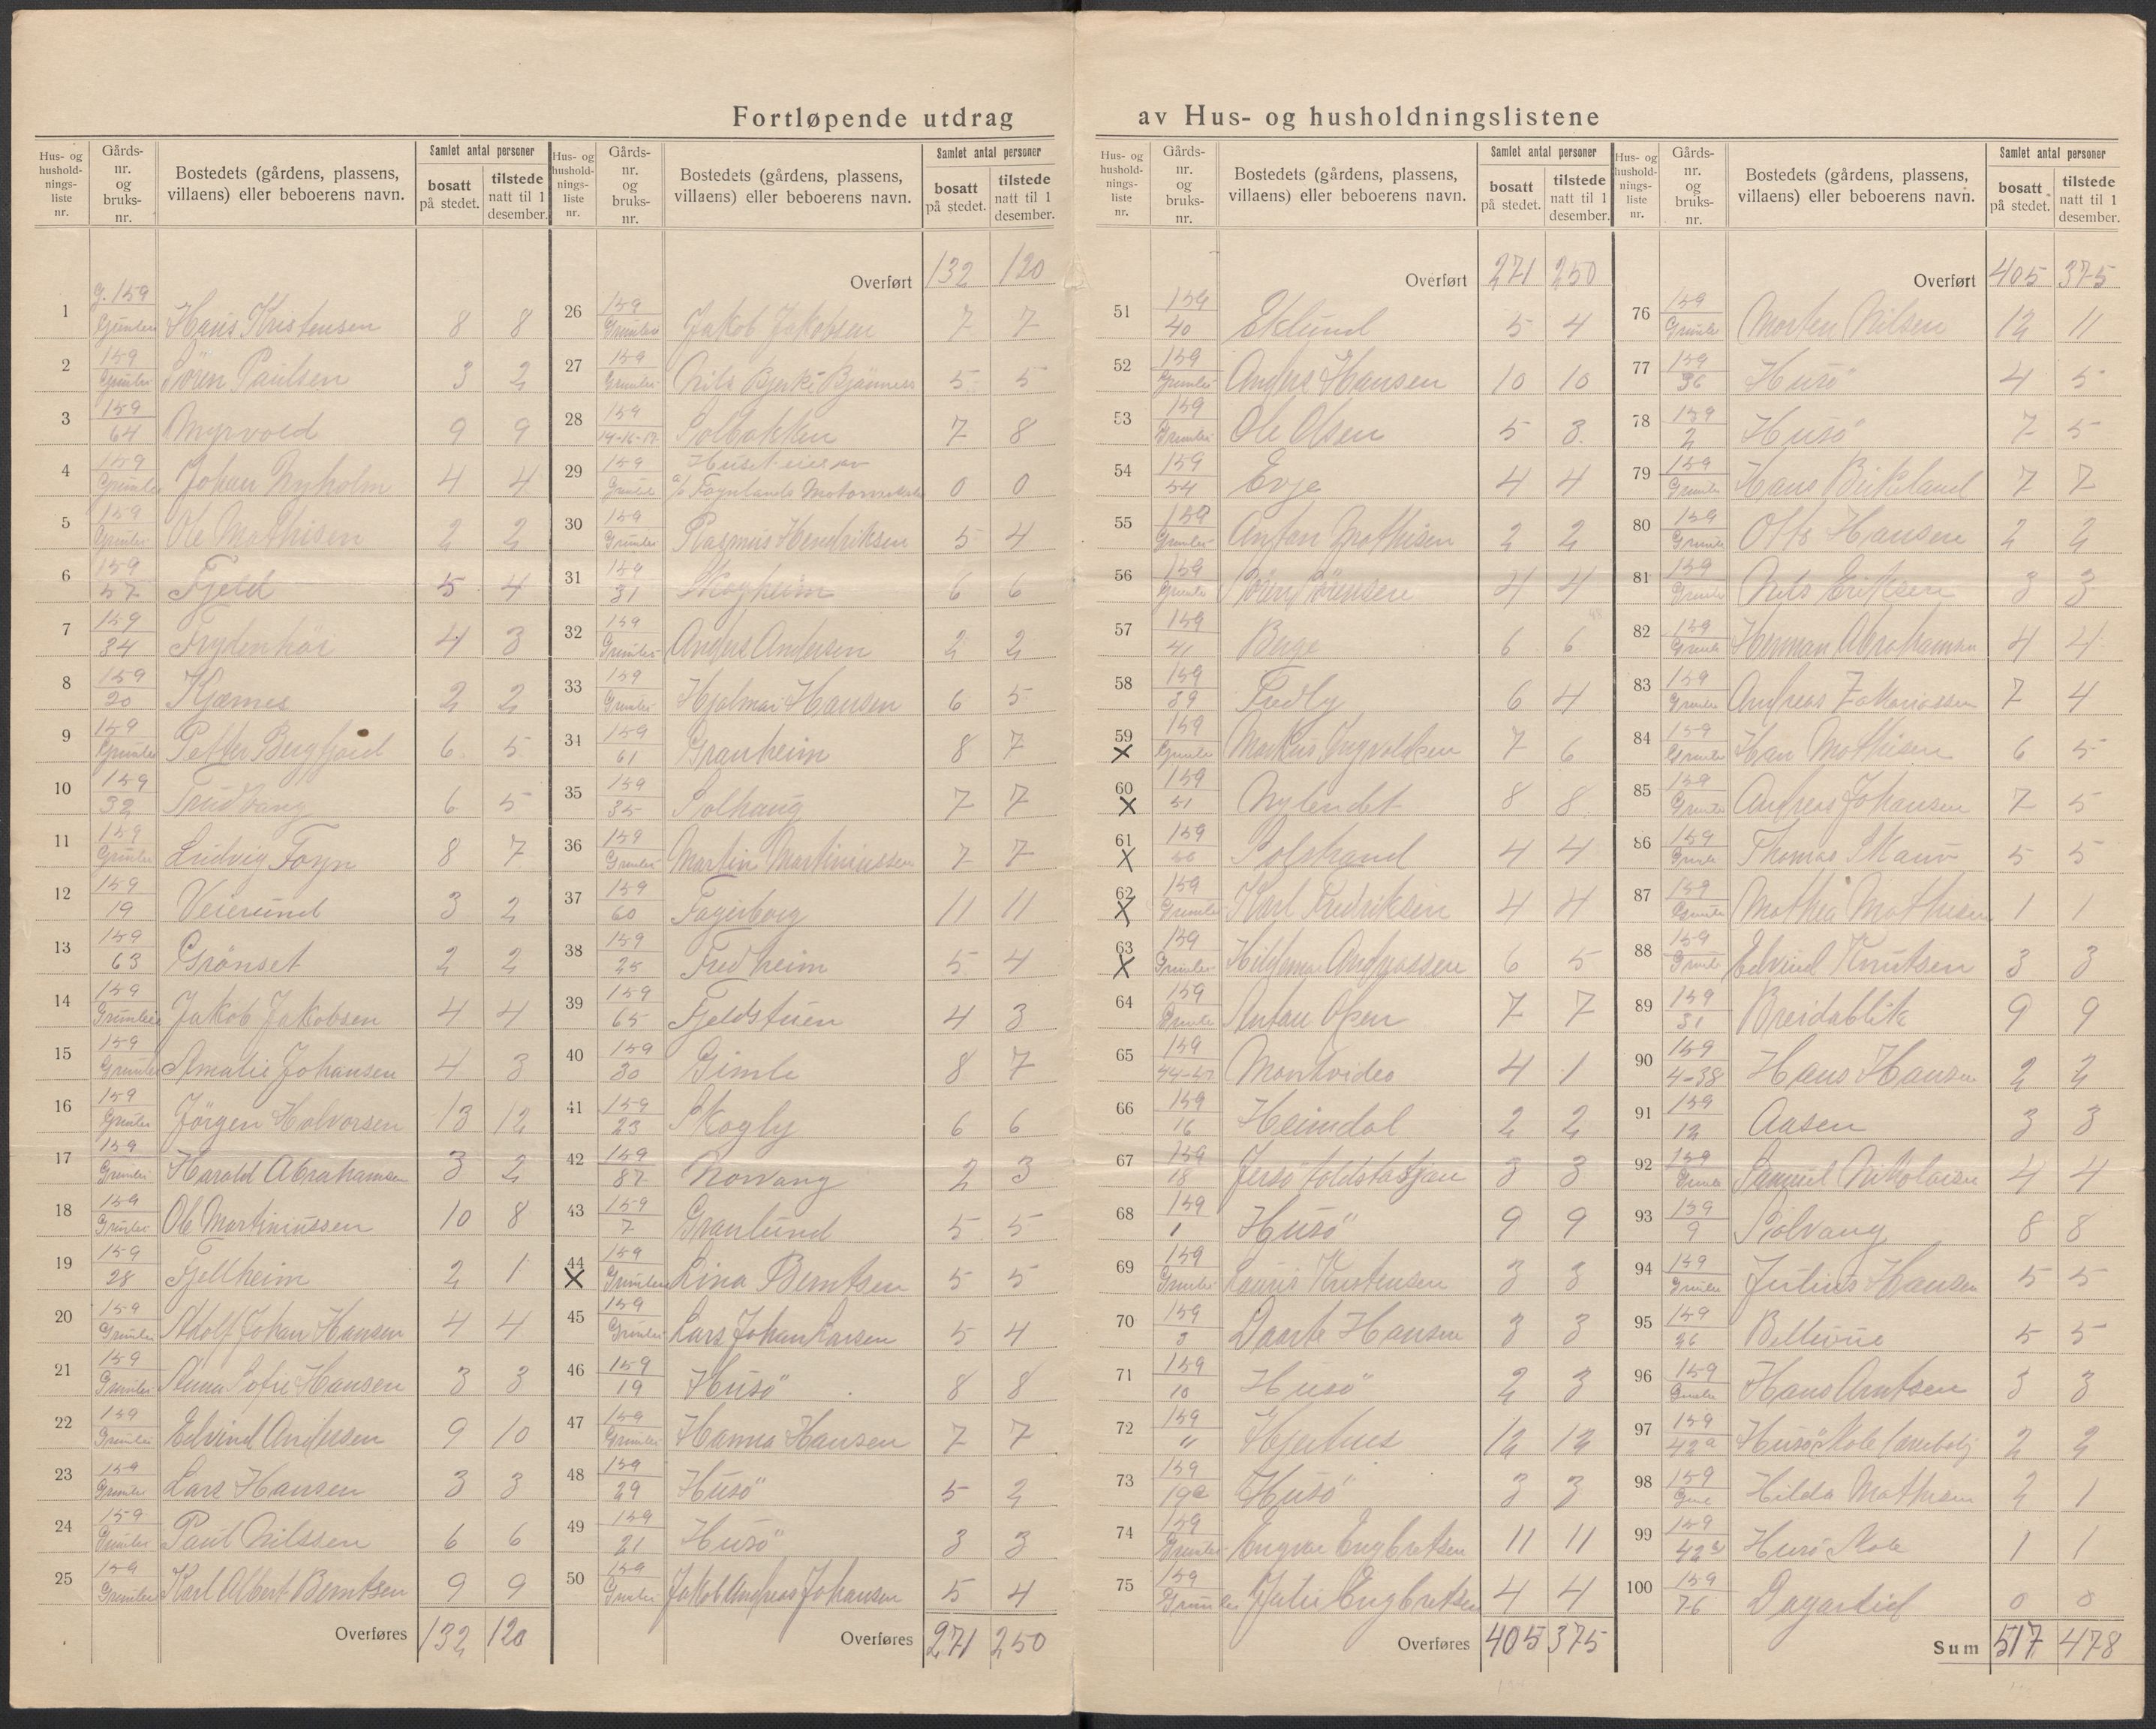 Fortløpende utdrag av Hus- og husholdningslistene
Hus- og hushold-nings-liste nr. Gårds-nr. og bruks-nr. Bostedets (gårdens, plassens, villaens) eller beboerens navn. Samlet antal personer bosatt på stedet. tilstede natt til 1 desember.
1 G. 159 Grimlei Hans Kristensen 8 8
2 159 Grimlei Søren Paulsen 3 2
3 159 64 Myrvold 9 9
4 159 Grimlei Johan Nyholm 4 4
5 159 Grimlei Ole Mathisen 2 2
6 159 57 Fjeld 5 4
7 159 34 Frydenhöi 4 3
8 159 20 Kjærnes 2 2
9 159 Grimlei Petter Bergfjord 6 5
10 159 32 Trudvang 6 5
11 159 Grimlei Ludvig Foyn 8 7
12 159 19 Veierund 3 2
13 159 63 Grönset 2 2
14 159 Grimlei Jakob Jakobsen 4 4
15 159 Grimlei Amalie Johansen 4 3
16 159 Grimlei Jörgen Halvorsen 13 12
17 159 Grimlei Harald Abrahamsen 3 2
18 159 Grimlei Ole Martiniussen 10 8
19 159 28 Fjellheim 2 1
20 159 Grimlei Adolf Johan Hansen 4 4
21 159 Grimlei Anna Sofie Hansen 3 3
22 159 Grimlei Edvind Andersen 9 10
23 159 Grimlei Lars Hansen 3 3
24 159 Grimlei Paul Nilssen 6 6
25 159 Grimlei Karl Albert Berntsen 9 9
Overføres 132 120
Hus- og hushold-nings-liste nr. Gårds-nr. og bruks-nr. Bostedets (gårdens, plassens, villaens) eller beboerens navn. Samlet antal personer bosatt på stedet. tilstede natt til 1 desember.
Overført 132 120
26 159 Grimlei Jakob Jakobsen 7 7
27 159 Grimlei Nils Bjerke 5 5
28 159 14-16-17 Solbakken 7 8
29 159 Grimlei Huset eies av
A/S Foynlands 0 0
30 159 Grimlei Rasmus Hendriksen 5 4
31 159 31 Skogheim 6 6
32 159 Grimlei Anders Andersen 2 2
33 159 Grimlei Hjalmar Hansen 6 5
34 159 61 Granheim 8 7
35 159 35 Solhaug 7 7
36 159 Grimlei Martin Martiniussen 7 7
37 159 60 Fagerborg 11 11
38 159 25 Fredheim 5 4
39 159 65 Fjeldstuen 4 3
40 159 30 Gimle 8 7
41 159 23 Skogly 6 6
42 159 87 Norvang 2 3
43 159 7 Granlund 5 5
44 X 159 Grimlei Lina Berntsen 5 5
45 159 Grimlei Lars Johan Larsen 5 4
46 159 19 Husö 8 8
47 159 Grimlei Hanna Hansen 7 7
48 159 29 Husö 5 2
49 159 21 Husö 3 3
50 159 Grimlei Jakob Andreas Johansen 5 4
Overføres 271 250
Hus- og hushold-nings-liste nr. Gårds-nr. og bruks-nr. Bostedets (gårdens, plassens, villaens) eller beboerens navn. Samlet antal personer bosatt på stedet. tilstede natt til 1 desember.
Overført 271 250
51 159 40 Eklund 5 4
52 159 Grimlei Anders Hansen 10 10
53 159 Grimlei Ole Olsen 5 3
54 159 54 Evje 4 4
55 159 Grimlei Anton Mathisen 2 2
56 159 Grimlei Sören Sörensen 4 4
57 159 41 Berge 6 6
58 159 39 Fredly 6 4
59 X 159 Grimlei Markus Ingvoldsen 7 6
60 X 159 51 Nylendet 8 8
61 X 159 50 Solstrand 4 4
62 X 159 Grimlei Karl Fredriksen 4 4
63 X 159 Grimlei Hildemar Andreassen 6 5
64 159 Grimlei Anton Olsen 7 7
65 159 Montvideo 4 1
66 159 16 Heimdal 2 2
67 159 18 Jersö toldstasjon 3 3
68 159 1 Husö 9 9
69 159 Grimlei Lauris Kristensen 3 3
70 159 3 Daarte Hansen 3 3
71 159 10 Husö 2 3
72 159 " Hjerhus 12 12
73 159 19a Husö 3 3
74 159 Grimlei Engvar Engbretsen 11 11
75 159 Grimlei Julie Engbretsen 4 4
Overføres 405 375
Hus- og hushold-nings-liste nr. Gårds-nr. og bruks-nr. Bostedets (gårdens, plassens, villaens) eller beboerens navn. Samlet antal personer bosatt på stedet. tilstede natt til 1 desember.
Overført 405 375
76 159 Grimlei Morten Nilsen 12 11
77 159 36 Husö 4 5
78 159 2 Husö 7 5
79 159 Grimlei Hans Birkeland 7 7
80 159 Grimlei Otto Hansen 2 2
81 159 Grimlei Nils Eriksen 3 3
82 159 Grimlei Herman Abrahamsen 4 4
83 159 Grimlei Andreas Zakariassen 7 4
84 159 Grimlei Han Mathisen 6 5
85 159 Grimlei Andreas Johansen 7 5
86 159 Grimlei Thomas Skauv 5 5
87 159 Grimlei Mathea Mathisen 1 1
88 159 Grimlei Edvind Knutsen 3 3
89 159 31 Breidablik 9 9
90 159 4-38 Hans Hansen 2 2
91 159 12 Aasen 3 3
92 159 Grimlei Samuel Nikolaisen 4 4
93 159 9 Solvang 8 8
94 159 Grimlei Julius Hansen 5 5
95 159 26 Bellevue 5 5
96 159 Grimlei Hans Arntsen 3 3
97 159 42a Husö Skole 2 2
98 159 Hilda Mathisen 2 1
99 159 42b Husö Skole 1 1
100 159 76 Dagarlid 0 0
Sum 517 478